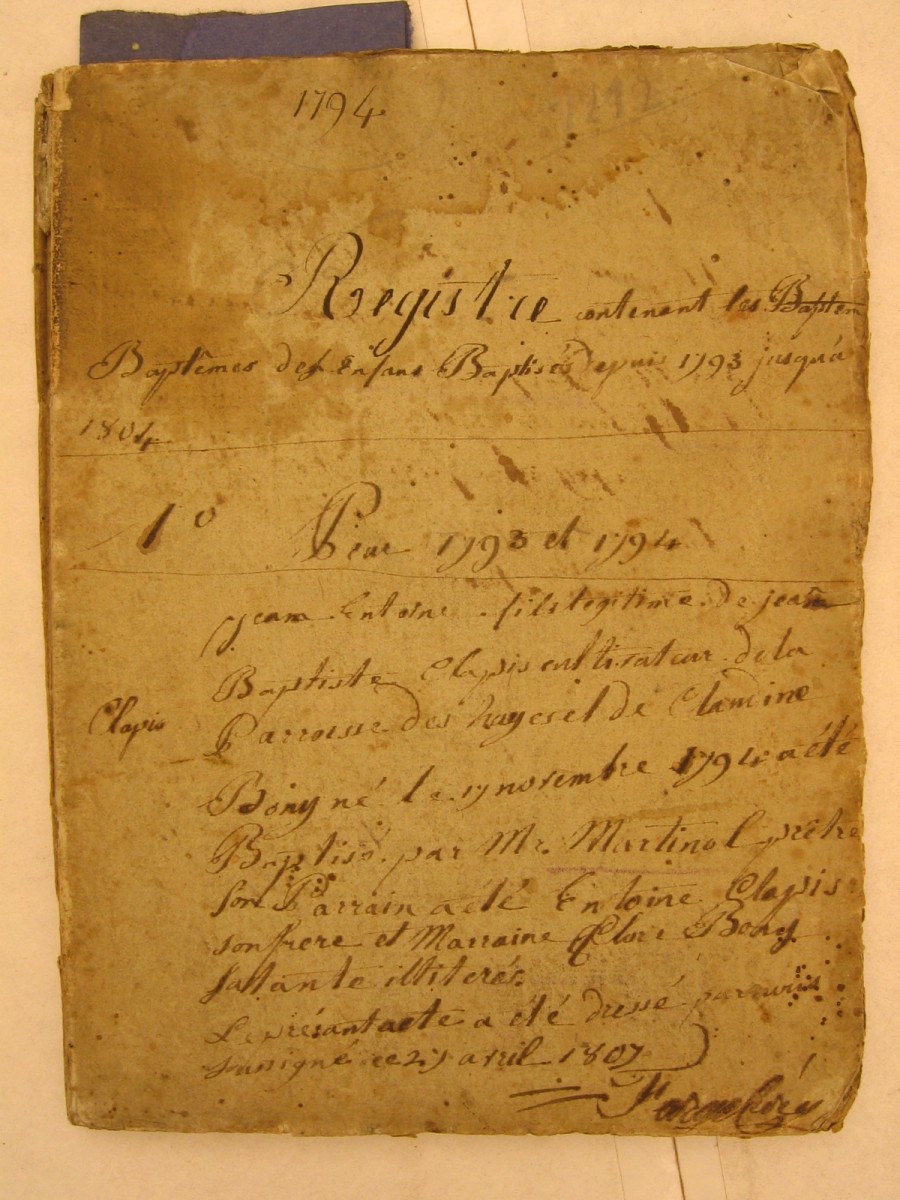 1794
Registre contenant les Baptem
Baptêmes des Enfans Baptisés Depuis 1793 jusqu'à
1804
1º Pour 1793 et 1794
jean Entoine fils legitime de jean
Baptiste Clapis cultivateur de la
Clapis
Parroisse des hayes et de Claudine
Bony né le 17 novembre 1794 a été
Baptisé par Mr. Martinol prêtre
son Parrain a été Entoine Clapis
son frere et Marraine Bony
sa tante illiterés
Le présant acte a été dressé par
sussigné ce 29 avril 1807